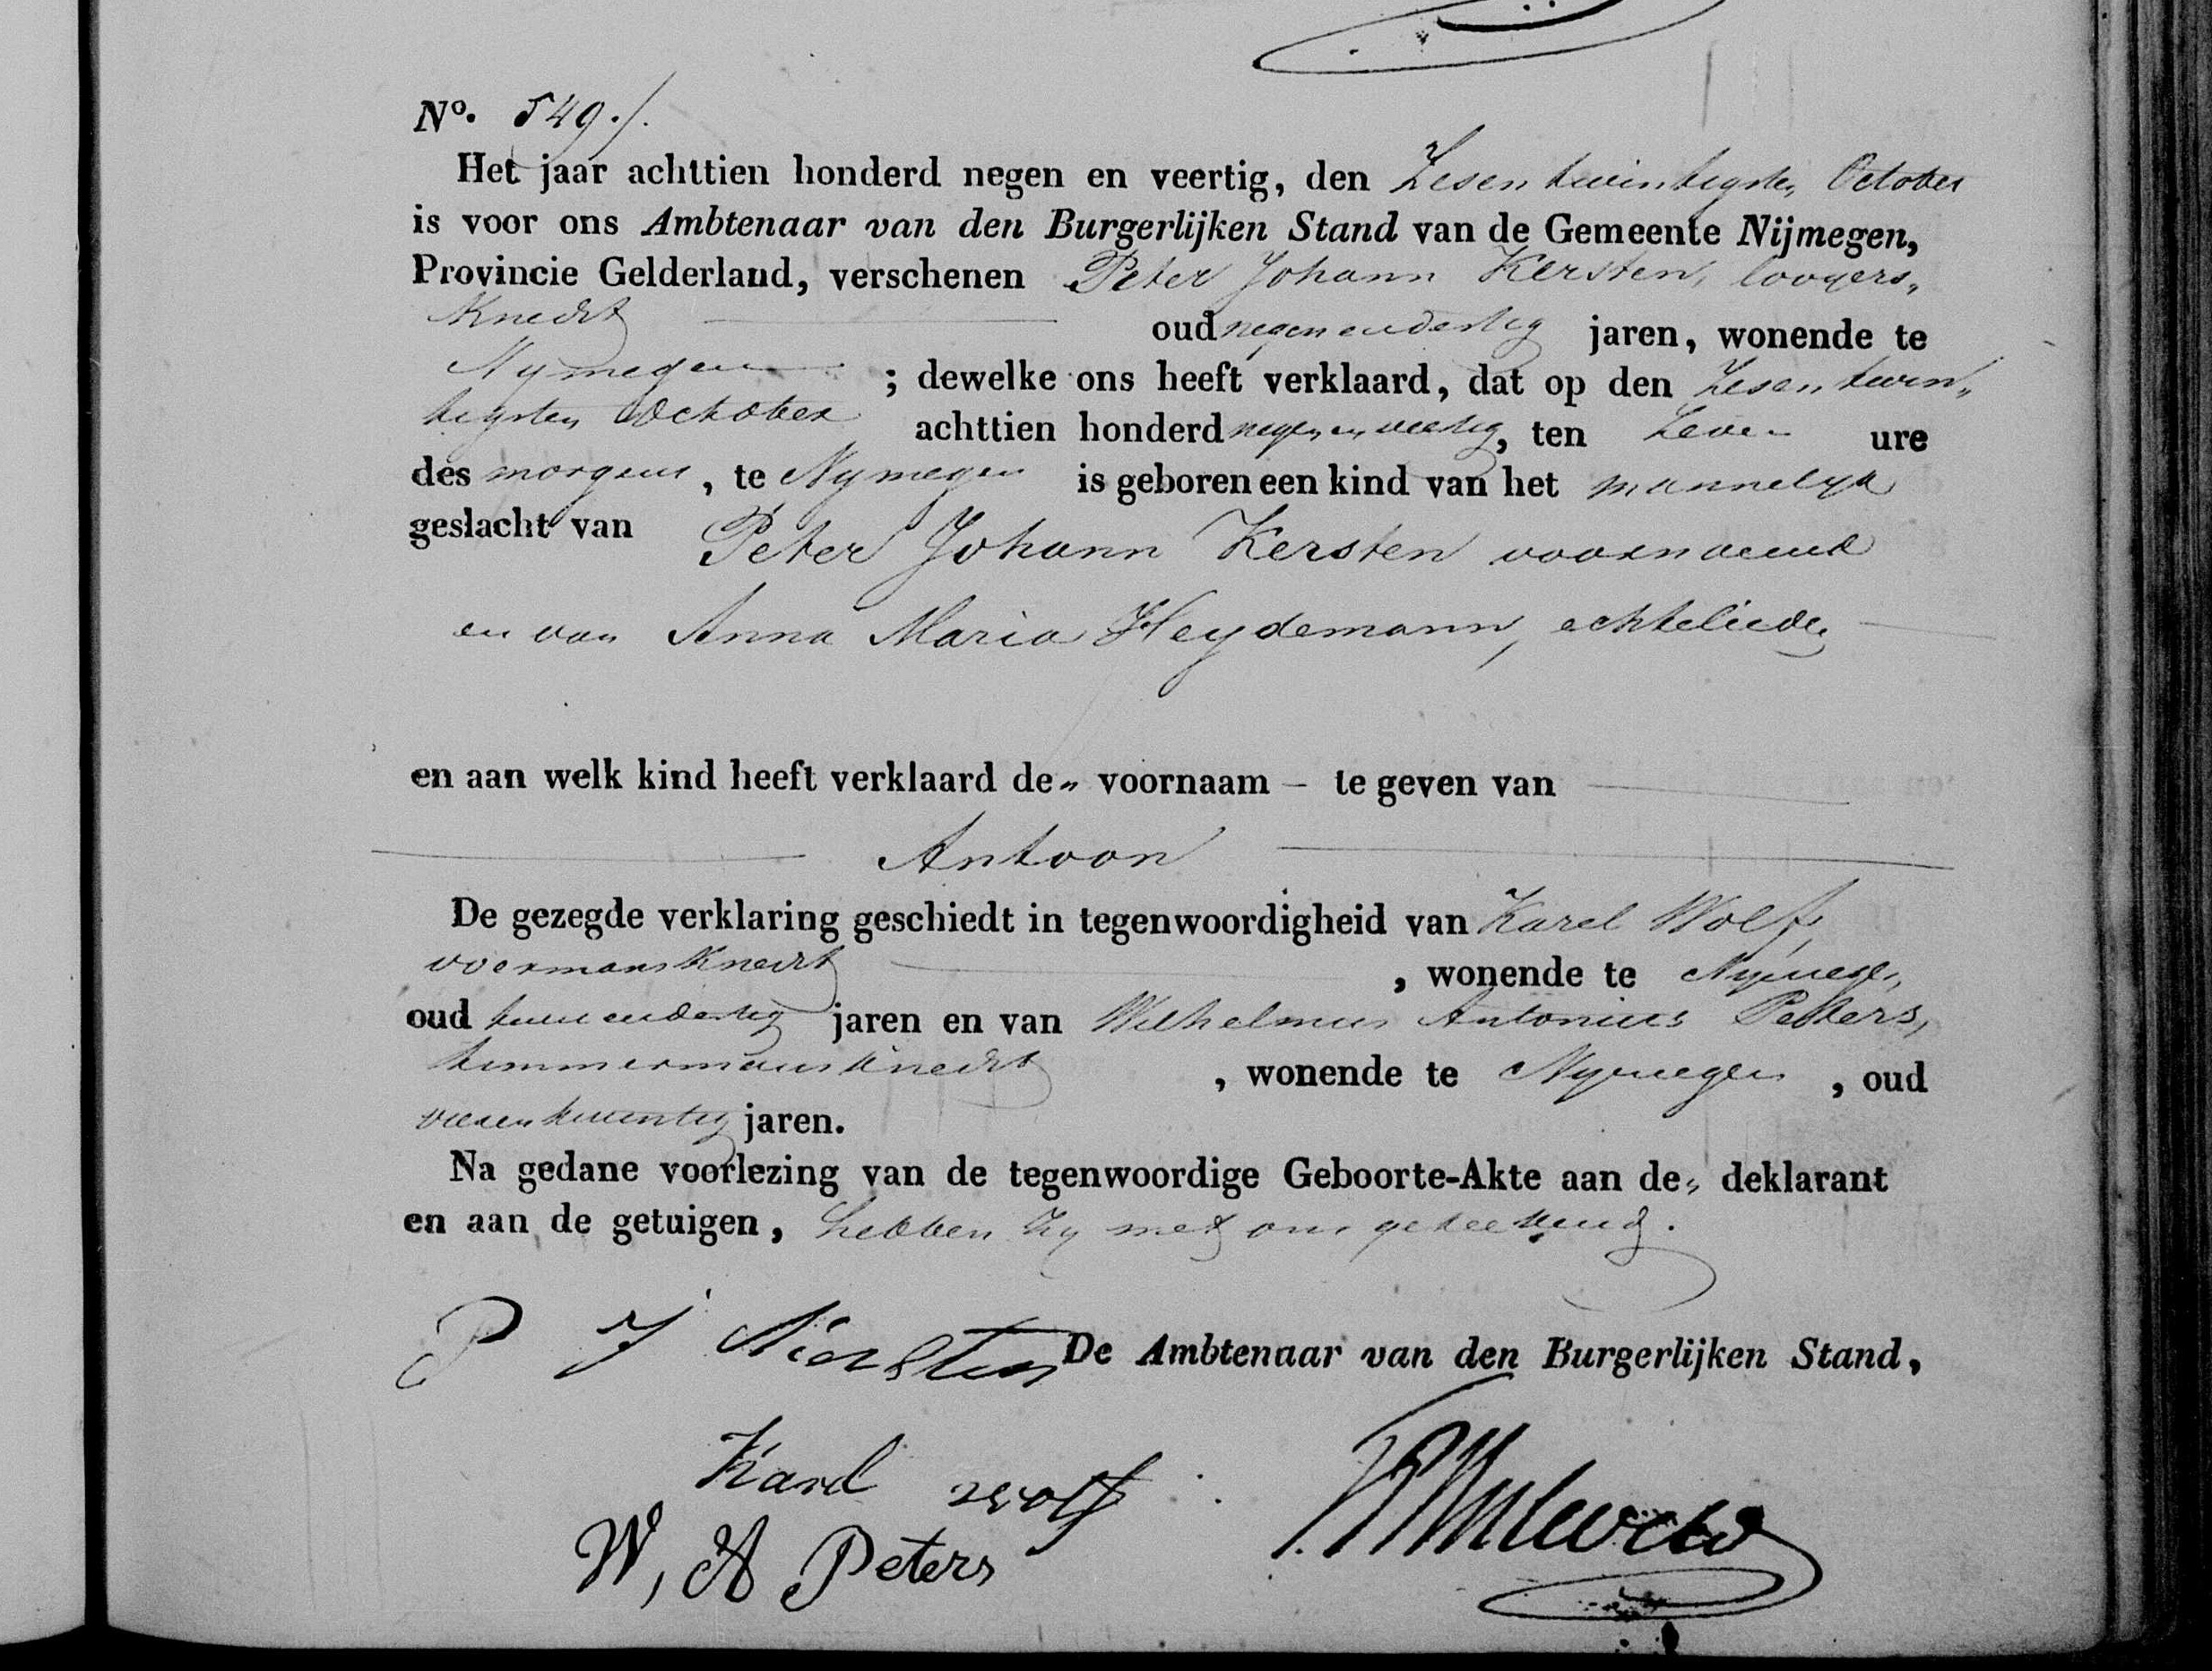 Nº. 549./.
Het jaar achttien honderd negen en veertig, den Zesentwintigsten October
is voor ons Ambtenaar van den Burgerlijken Stand van de Gemeente Nijmegen,
Provincie Gelderland, verschenen Peter Johann Kersten, looyers„
Knecht oud negenendertig jaren, wonende te
Nymegen ; dewelke ons heeft verklaard, dat op den Zesentwin„
tigsten October achttien honderd negen en veertig, ten Zeven ure
des morgens, te Nymegen is geboren een kind van het mannelyk
geslacht van Peter Johann Kersten voornoemd
en van Anna Maria Heydemann, echtelieden
en aan welk kind heeft verklaard de„ voornaam – te geven van
Antoon
De gezegde verklaring geschiedt in tegenwoordigheid van Karel Wolf,
voermansknecht , wonende te Nymegen,
oud tweeendertig jaren en van Wilhelmus Antonius Peters,
timmermansknecht , wonende te Nymegen , oud
vierentwintig jaren.
Na gedane voorlezing van de tegenwoordige Geboorte-Akte aan de„ deklarant
en aan de getuigen, hebben zy met ons geteekend.
P J Kersten De Ambtenaar van den Burgerlijken Stand,
Karel wolf
W, A Peters